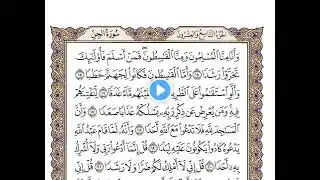 الجزء التاسع والعشرون سُورَةُ الجِنِّ
وَأَنَّا مِنَّا ٱلْمُسْلِمُونَ وَمِنَّا ٱلْقَٰسِطُونَ فَمَنْ أَسْلَمَ فَأُو۟لَٰٓئِكَ
تَحَرَّوْا۟ رَشَدًا ١٤ وَأَمَّا ٱلْقَٰسِطُونَ فَكَانُوا۟ لِجَهَنَّمَ حَطَبًا ١٥
وَأَلَّوِ ٱسْتَقَٰمُوا۟ عَلَى مَّآءً غَدَقًا ١٦ لِّنَفْتِنَهُمْ
فِيهِ وَمَن يُعْرِضْ عَن ذِكْرِ رَبِّهِۦ يَسْلُكْهُ عَذَابًا صَعَدًا ١٧ وَأَنَّ
ٱلْمَسَٰجِدَ لِلَّهِ فَلَا تَدْعُوا۟ مَعَ ٱللَّهِ أَحَدًا ١٨ وَأَنَّهُۥ لَمَّا قَامَ عَبْدُ ٱللَّهِ
يَدْعُوهُ كَادُوا۟ يَكُونُونَ عَلَيْهِ لِبَدًا ١٩ قُلْ إِنَّمَآ أَدْعُوا۟ رَبِّى وَلَآ أُشْرِكُ
بِهِۦٓ أَحَدًا ٢٠ قُلْ إِنِّى لَآ أَمْلِكُ لَكُمْ ضَرًّا وَلَا رَشَدًا ٢١ قُلْ إِنِّى